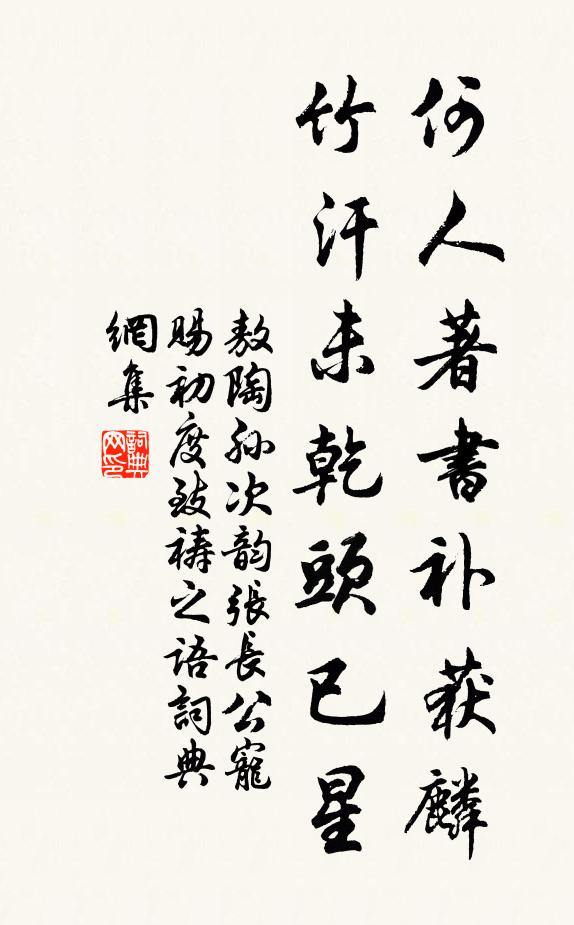 何人著書补获麟
竹汗未乾頭已星
敖陶孙次韵張長公寵
賜初度致禱之語詞典
網集
詞典网印